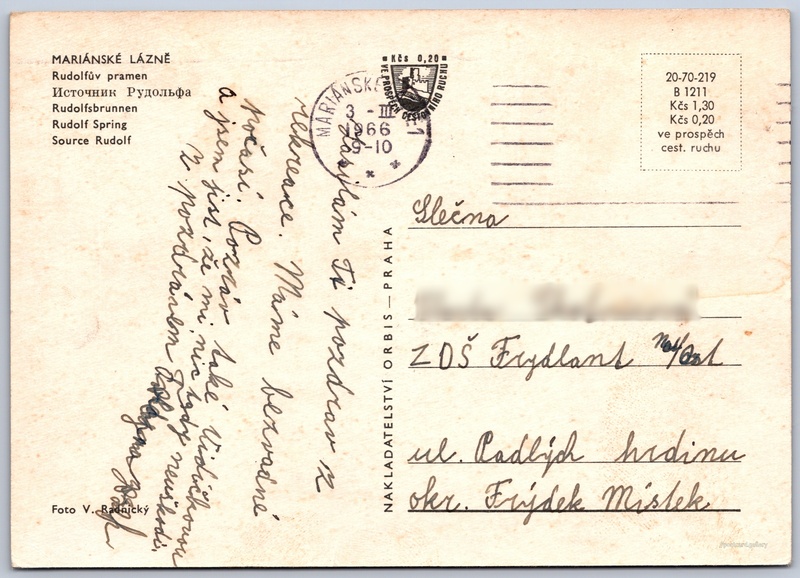 MARIÁNSKÉ LÁZNĚ
Rudolfův pramen
Источник Рудольфа
Rudolfsbrunnen
Rudolf Spring
Source Rudolf
Kčs 0,20
VE PROSPĚCH CESTOVNÍHO RUCHU
MARIÁNSKÉ
3 - III
1966
9-10
1
20-70-219
B 1211
Kčs 1,30
Kčs 0,20
ve prospěch
cest. ruchu
Zasýlám Ti pozdrav z
rekreace. Máme bezvadné
počasí. Pozdrav také
a jsem jist, že mi nic tady neuškodí.
Z pozdravem
NAKLADATELSTVÍ ORBIS — PRAHA
Slečna
ZDŠ Frydlant
ul. Padlých hrdinu
okr. Frýdek Místek
Foto V. Radnický